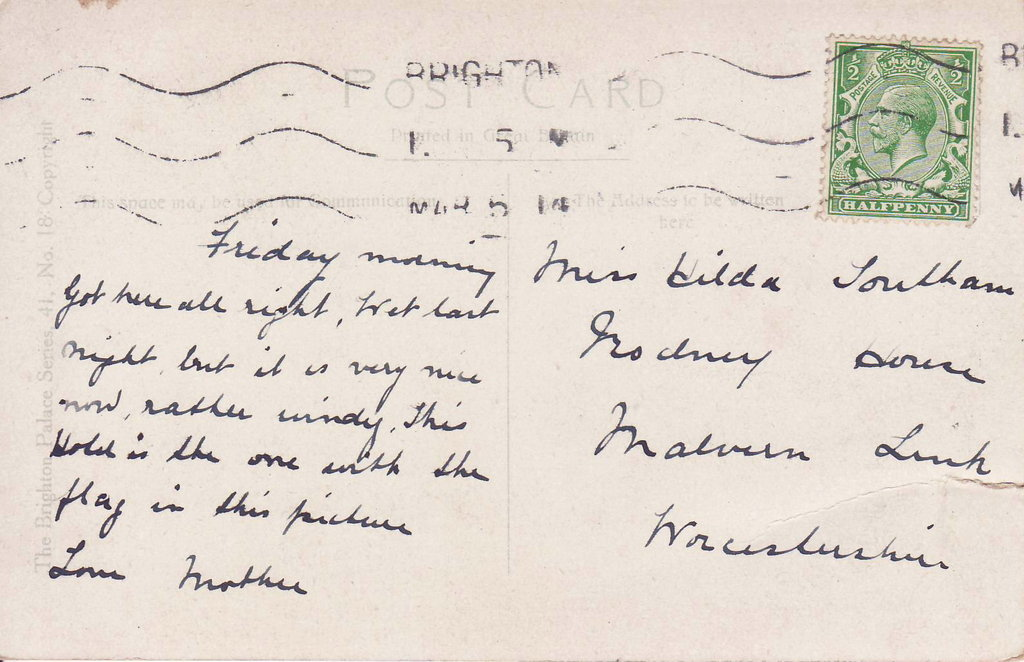 BRIGHTON
POST CARD
Printed in Great Britain
1. 5
MAR 5 14
This space may be used for Communication
The Address to be written
here
1/2 1/2
POSTAGE REVENUE
HALFPENNY
Friday morning
Got here all right, Wet last
night, but it is very nice
now, rather windy, This
Hotel is the one with the
flag in this picture
Love Mother
Miss Hilda Southam
Rodney House
Malvern Link
Worcestershire
The Brighton Palace Series, 41, No. 18 Copyright